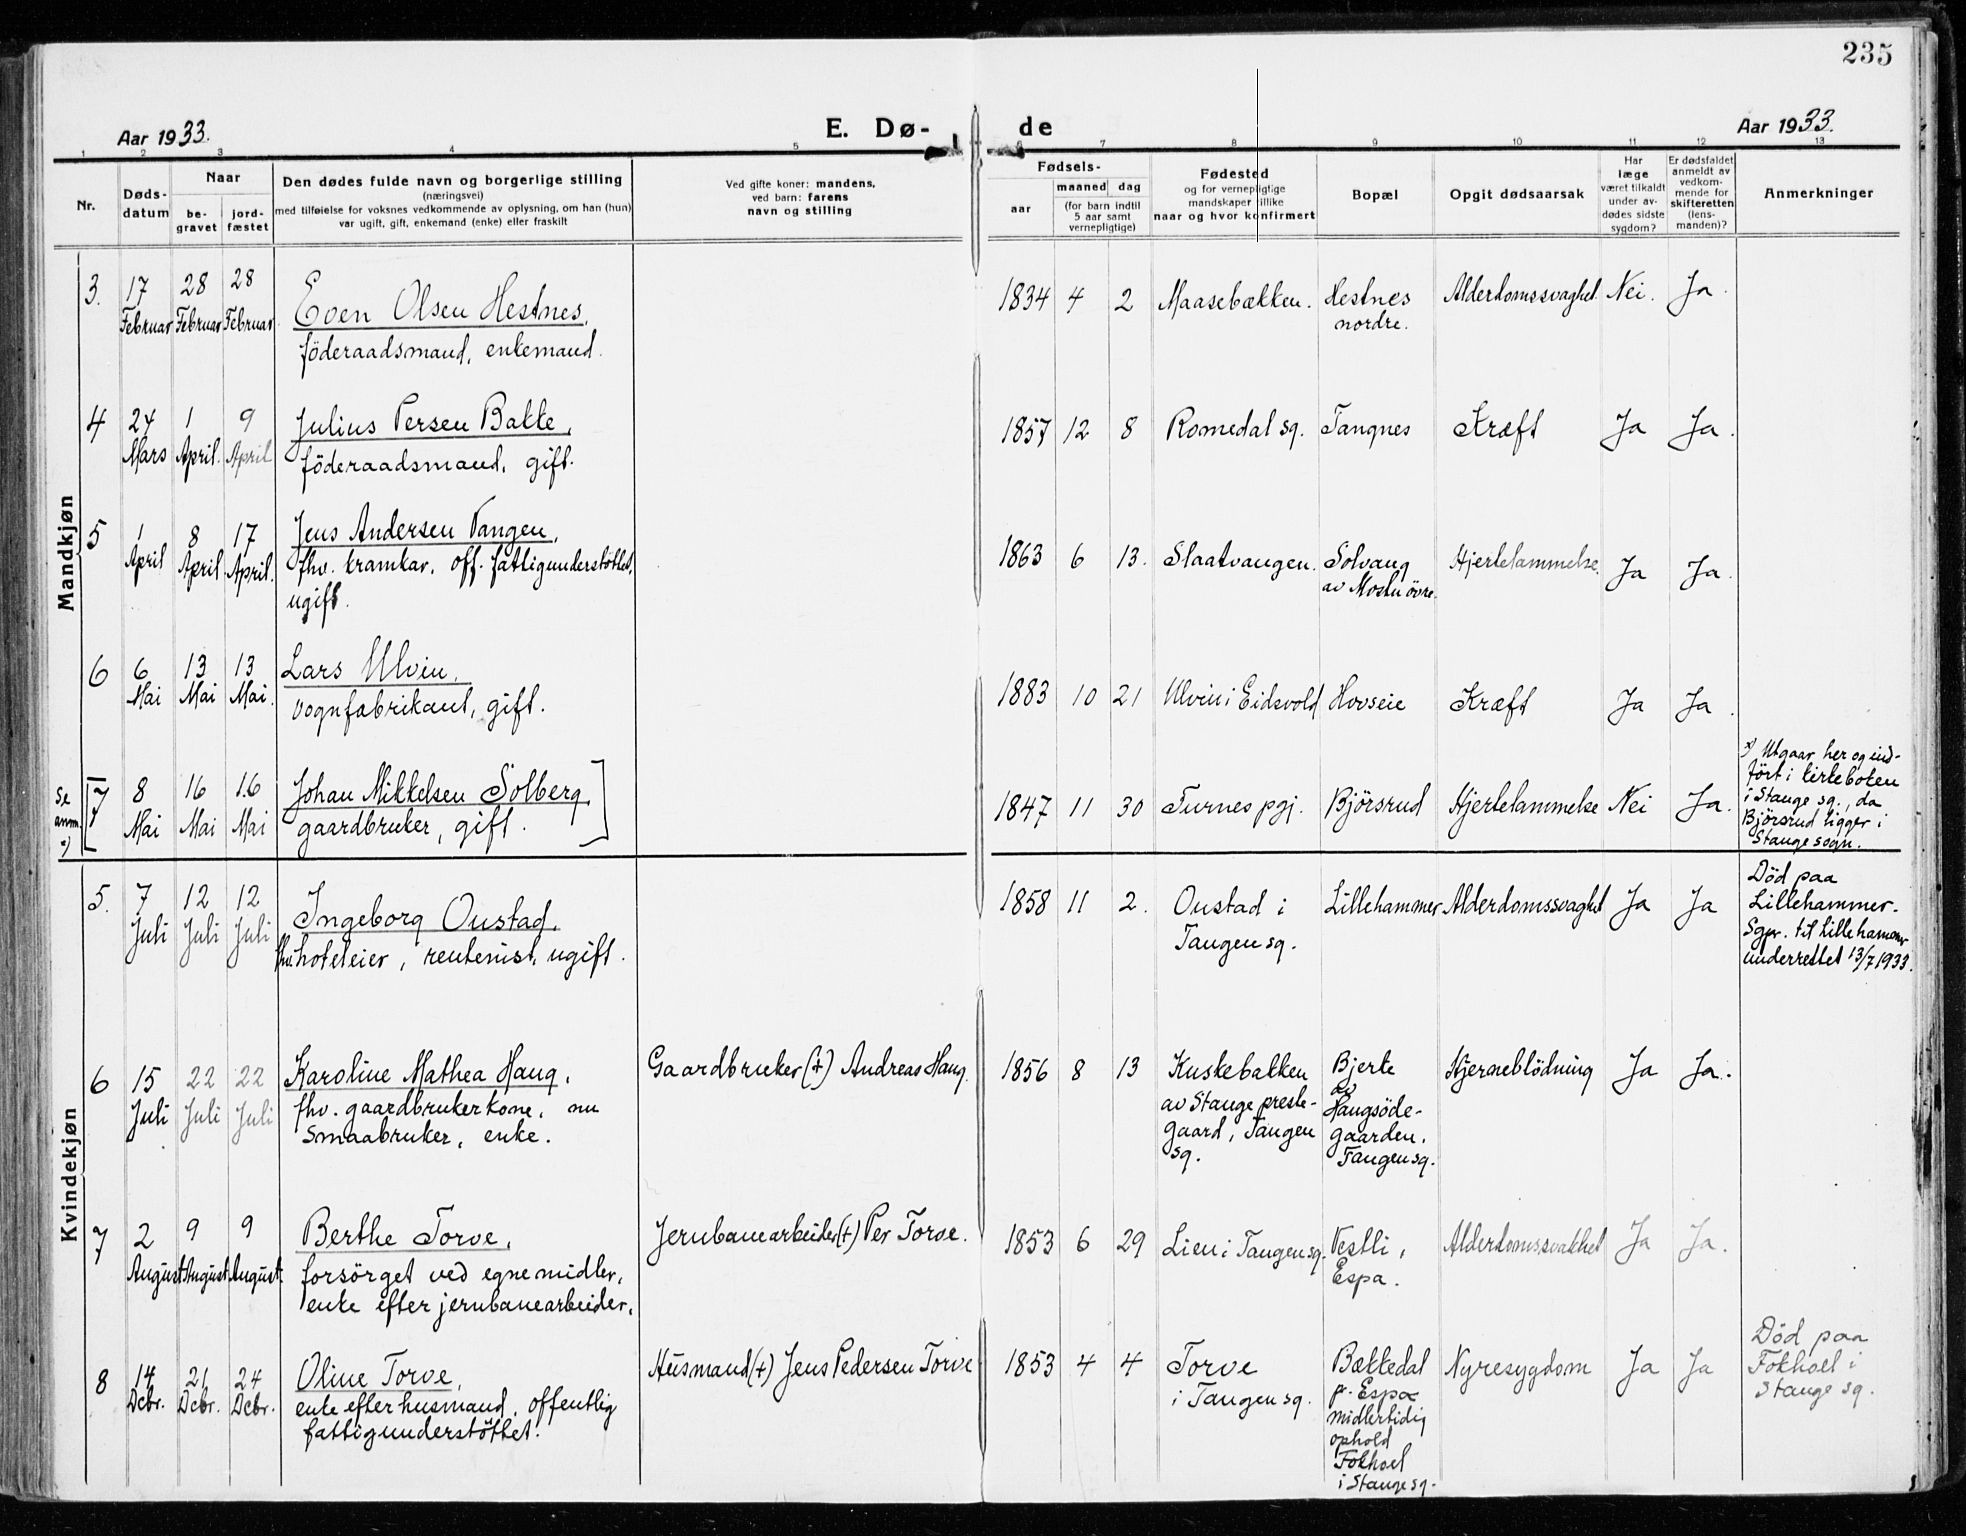 235
Aar 1933.
E. Dø-
de
Aar 1933.
1 2 3 4 5 6 7 8 9 10 11 12 13
Nr.
Døds-
datum
Naar
be-
gravet
jord-
fæstet
Den dødes fulde navn og borgerlige stilling
(næringsvei)
med tilføielse for voksnes vedkommende av oplysning, om han (hun)
var ugift, gift, enkemand (enke) eller fraskilt
Ved gifte koner: mandens,
ved barn: farens
navn og stilling
Fødsels-
aar
maaned dag
(for barn indtil
5 aar samt
vernepligtige)
Fødested
og for vernepligtige
mandskaper tillike
naar og hvor konfirmert
Bopæl
Opgit dødsaarsak
Har
læge
været tilkaldt
under av-
dødes sidste
sygdom?
Er dødsfaldet
anmeldt av
vedkom-
mende for
skifteretten
(lens-
manden)?
Anmerkninger
Mandkjøn
3. 17 28 28 Even Olsen Hestnes, 1834 4 2 Maasebækken. Hestnes Alderdomssvaghet Nei. Ja.
Februar Februar Februar föderaadsmand, enkemand. nordre.
4 24 1 9 Julius Persen Bakke, 1857 12 8 Romedal sg. Tangnes Kræft Ja Ja.
Mars April. April föderaadsmand, gift.
5 1 8 17 Jens Andersen Vangen, 1863 6 13. Slaatvangen. Solvang Hjertelammelse. Ja Ja.
April April April. fhv. kramkar, off. fattigunderstöttet, av Mostu övre.
ugift.
6 6 13 13 Lars Ulvin, 1883 10 21 Ulvin i Eidsvold Hovseie Kræft Ja Ja.
Mai Mai Mai. vognfabrikant, gift.
Se
anm.
x)
[7 8 16 16 Johan Mikkelsen Solberg, 1847 11 30 Furnes pgj. Björsrud Hjertelammelse Nei Ja.
Mai Mai Mai gaardbruker, gift.]
x) Utgaar her og ind-
fört i kirkeboken
i Stange sg., da
Björsrud ligger i
Stange sogn.
Kvindekjøn
5. 7 12 12 Ingeborg Oustad, 1858 11 2. Oustad i Lillehammer Alderdomssvaghet Ja Ja
Juli Juli Juli fhv. hoteleier, rentenist, ugift. Tangen sg.
Död paa
Lillehammer.
Sgpr. til Lillehammer
underrettet 13/7 1933.
6 15 22 22 Karoline Mathea Haug, Gaardbruker (+) Andreas Haug. 1856 8 13 Kuskebakken Bjerke Hjerneblödning Ja Ja.
Juli Juli Juli fhv. gaardbrukerkone, nu av Stange preste- av
smaabruker, enke. gaard, Tangen Haugsöde-
sg. gaarden,
Tangen sg.
7 2 9 9 Berthe Torve, Jernbanearbeider (+) Per Torve. 1853 6 29 Lien i Tangen sg. Vestli, Alderdomssvakhet Ja Ja.
August August August. forsörget ved egne midler, Espa.
enke efter jernbanearbeider.
8 14 21 24 Oline Torve, Husmand (+) Jens Pedersen Torve 1853 4 4 Torve Bækkedal Nyresygdom Ja Ja
Dcbr. Dcbr. Dcbr. enke efter husmand, offentlig i Tangen sg. pr. Espa
fattigunderstöttet. midlertidig
ophold
Fokhoel
i Stange sg.
Död paa
Fokhoel i
Stange sg.